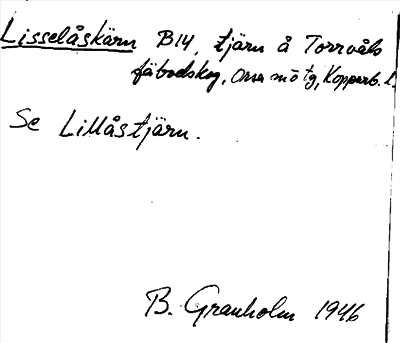 Lisselåskärn B14, tjärn å Torrvåls
fäbodskog, Orsa m ö tg, Kopparb. l.
Se Lillåstjärn.
B. Granholm 1946